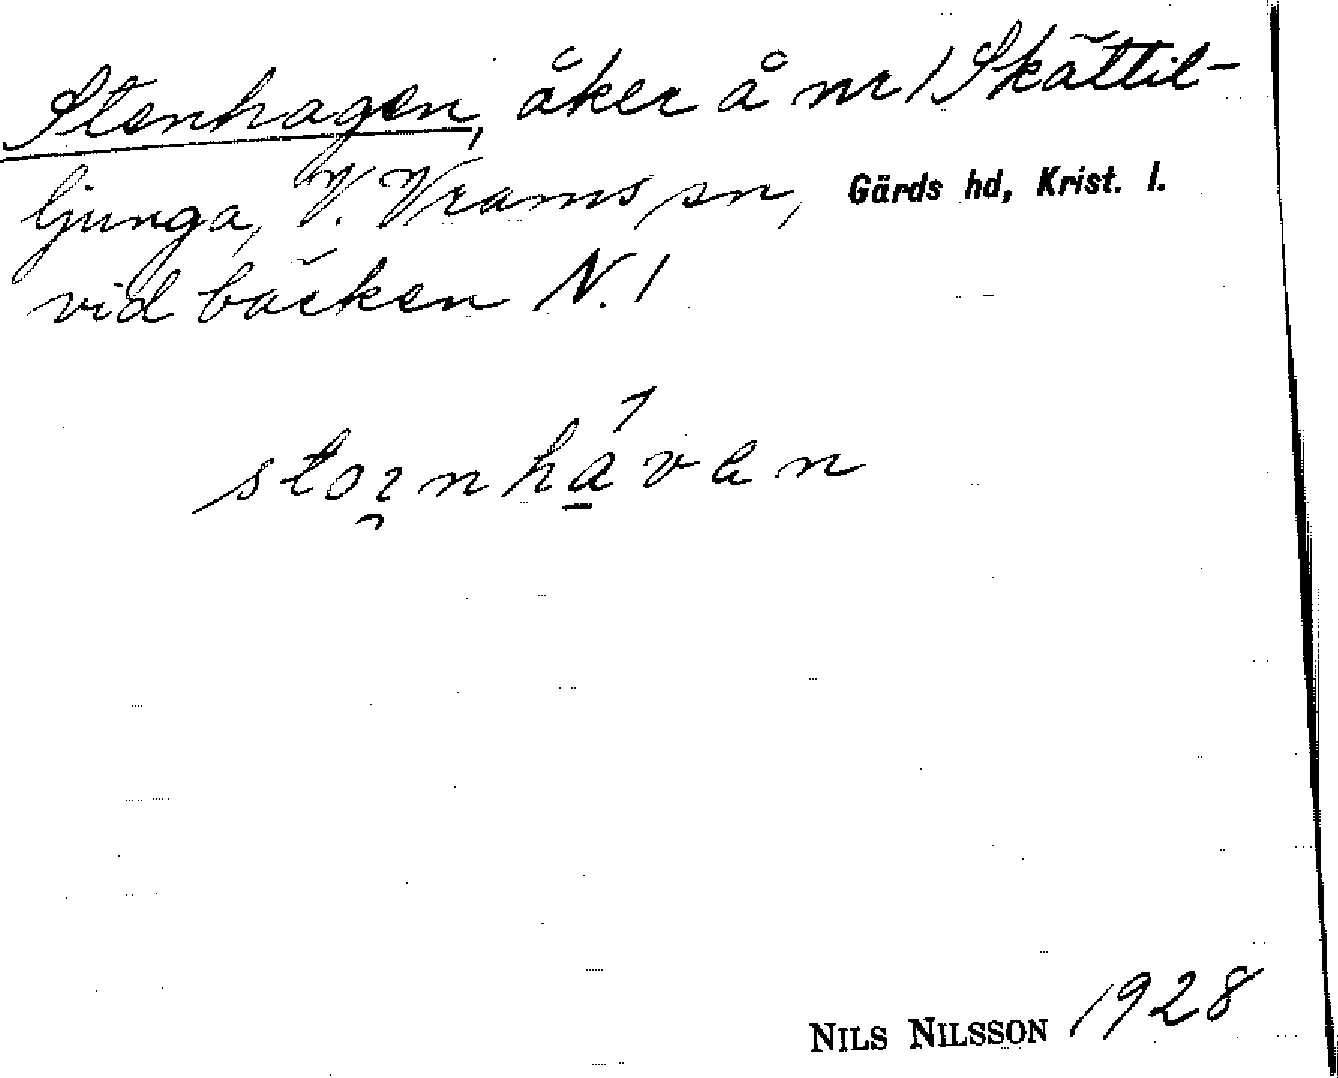 Stenhagen, åker å nr 1 Skättil-
ljunga, V. Vrams sn, Gärds hd, Krist. l.
vid bäcken N. 1
NILS NILSSON 1928